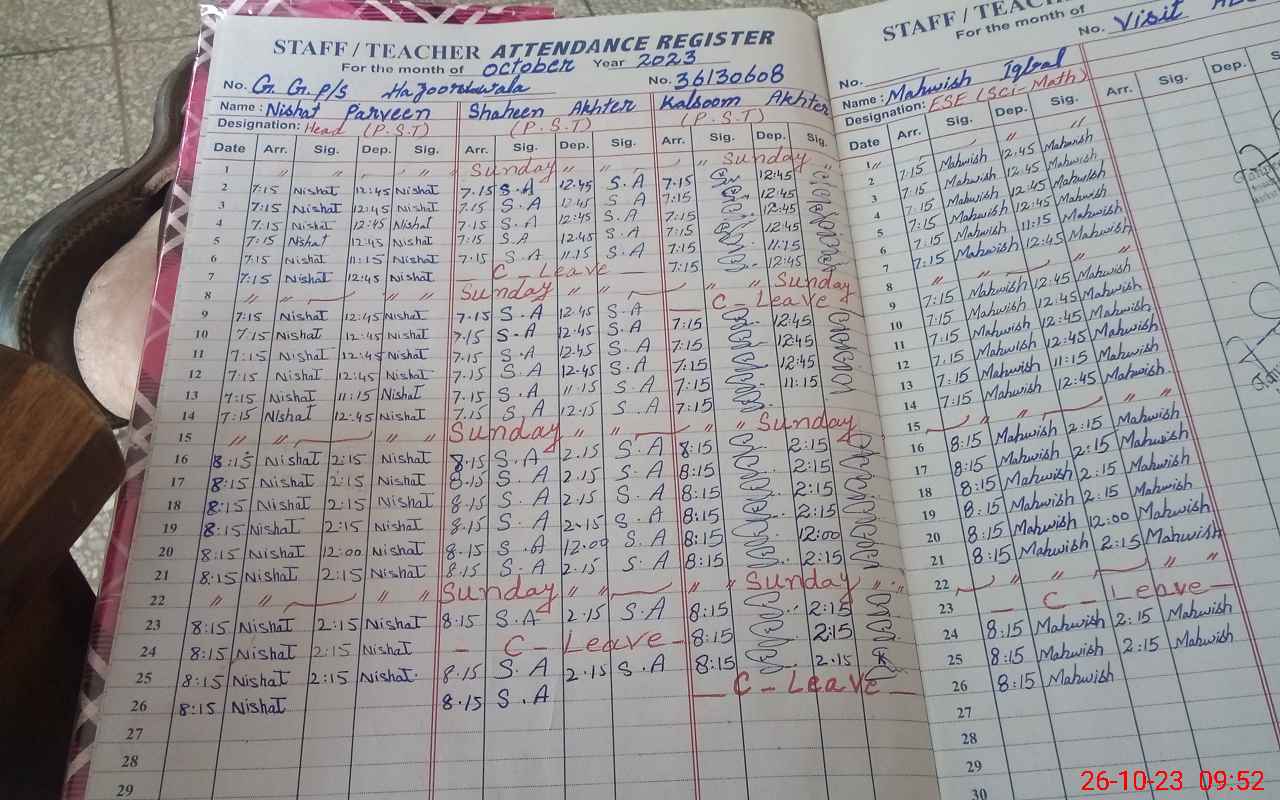 STAFF / TEACHER ATTENDANCE REGISTER
For the month of October Year 2023
No. G. G. P/S Hazoorluwala No. 36130608
Name : Nishat Parveen Shaheen Akhter Kalsoom Akhter
Designation: Head (P.S.T) (P.S.T) (P.S.T)
Date Arr. Sig. Dep. Sig. Arr. Sig. Dep. Sig. Arr. Sig. Dep. Sig.
1 " " " " Sunday " " " " Sunday
2 7:15 Nishat 12:45 Nishat 7.15 S.A 12.45 S.A 7.15 12:45
3 7:15 Nishat 12:45 Nishat 7.15 S.A 12:45 S.A 7:15 12:45
4 7:15 Nishat 12:45 Nishat 7.15 S.A 12:45 S.A 7:15 12:45
5 7:15 Nishat 12:45 Nishat 7:15 S.A 12.45 S.A 7:15 12:45
6 7:15 Nishat 11:15 Nishat 7.15 S.A 11.15 S.A 7:15 11:15
7 7:15 Nishat 12:45 Nishat — C - Leave — 7:15 12:45
8 " " " " Sunday " " " " Sunday
9 7:15 Nishat 12:45 Nishat 7.15 S.A 12.45 S.A — C - Leave
10 7:15 Nishat 12:45 Nishat 7.15 S.A 12.45 S.A 7:15 12:45
11 7:15 Nishat 12:45 Nishat 7.15 S.A 12.45 S.A 7:15 12:45
12 7:15 Nishat 12:45 Nishat 7.15 S.A 12.45 S.A 7:15 12:45
13 7:15 Nishat 11:15 Nishat 7.15 S.A 11.15 S.A 7:15 11:15
14 7:15 Nishat 12:45 Nishat 7.15 S.A 12.15 S.A 7:15
15 " " " " Sunday " " " " Sunday
16 8:15 Nishat 2:15 Nishat 8.15 S.A 2.15 S.A 8:15 2:15
17 8:15 Nishat 2:15 Nishat 8.15 S.A 2.15 S.A 8:15 2:15
18 8:15 Nishat 2:15 Nishat 8.15 S.A 2.15 S.A 8:15 2:15
19 8:15 Nishat 2:15 Nishat 8.15 S.A 2.15 S.A 8:15 2:15
20 8:15 Nishat 12:00 Nishat 8.15 S.A 12.00 S.A 8:15 12:00
21 8:15 Nishat 2:15 Nishat 8.15 S.A 2.15 S.A 8:15 2:15
22 " " " " Sunday " " " " Sunday " "
23 8:15 Nishat 2:15 Nishat 8.15 S.A 2.15 S.A 8:15 2:15
24 8:15 Nishat 2:15 Nishat — C - Leave — 8:15 2:15
25 8:15 Nishat 2:15 Nishat 8.15 S.A 2.15 S.A 8:15 2.15
26 8:15 Nishat 8.15 S.A — C - Leave —
27
28
29
STAFF / TEACHER
For the month of
No. No. Visit
Name : Mahwish Iqbal
Designation: ESE (Sci-Math)
Date Arr. Sig. Dep. Sig. Arr. Sig. Dep.
1 " " "
2 7:15 Mahwish 12:45 Mahwish
3 7:15 Mahwish 12:45 Mahwish
4 7:15 Mahwish 12:45 Mahwish
5 7:15 Mahwish 12:45 Mahwish
6 7:15 Mahwish 11:15 Mahwish
7 7:15 Mahwish 12:45 Mahwish
8 " " "
9 7:15 Mahwish 12:45 Mahwish
10 7:15 Mahwish 12:45 Mahwish
11 7:15 Mahwish 12:45 Mahwish
12 7:15 Mahwish 12:45 Mahwish
13 7:15 Mahwish 11:15 Mahwish
14 7:15 Mahwish 12:45 Mahwish
15 " " "
16 8:15 Mahwish 2:15 Mahwish
17 8:15 Mahwish 2:15 Mahwish
18 8:15 Mahwish 2:15 Mahwish
19 8:15 Mahwish 2:15 Mahwish
20 8:15 Mahwish 12:00 Mahwish
21 8:15 Mahwish 2:15 Mahwish
22 " " " "
23 — C - Leave —
24 8:15 Mahwish 2:15 Mahwish
25 8:15 Mahwish 2:15 Mahwish
26 8:15 Mahwish
27
28
29
30
26-10-23 09:52